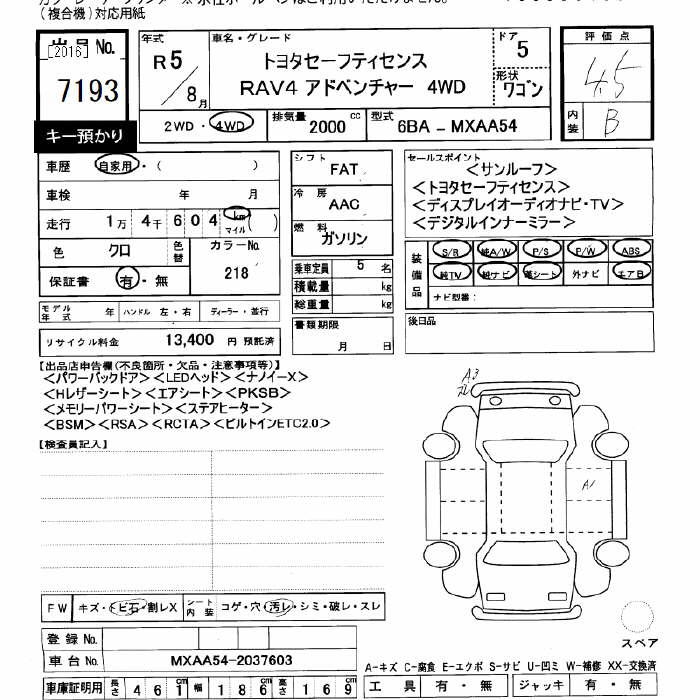 (複合機)対応用紙
出品No.
[2016]
7193
キー預かり
年式
R5/8月
車名・グレード
トヨタセーフティセンス
RAV4 アドベンチャー 4WD
ドア
5
形状
ワゴン
2WD・4WD
排気量 2000 cc
型式 6BA－MXAA54
評価点
4.5
内装 B
車歴 自家用・( )
車検 年 月
走行 1万 4千 6 0 4 km マイル ( )
色 クロ 色替
カラーNo.
218
保証書 有・無
シフト
FAT
冷房
AAC
燃料
ガソリン
乗車定員 5 名
積載量 kg
総重量 kg
書類期限
月 日
セールスポイント
＜サンルーフ＞
＜トヨタセーフティセンス＞
＜ディスプレイオーディオナビ・TV＞
＜デジタルインナーミラー＞
装備品
S/R 純A/W P/S P/W ABS
純TV 純ナビ 革シート 外ナビ エアB
ナビ型番：
後日品
モデル年式 年 ハンドル 左・右 ディーラー・並行
リサイクル料金 13,400 円 預託済
【出品店申告欄(不良箇所・欠品・注意事項等)】
＜パワーバックドア＞＜LEDヘッド＞＜ナノイーX＞
＜Hレザーシート＞＜エアシート＞＜PKSB＞
＜メモリーパワーシート＞＜ステアヒーター＞
＜BSM＞＜RSA＞＜RCTA＞＜ビルトインETC2.0＞
【検査員記入】
A3
A1
FW キズ・トビ石・割レX シート内装 コゲ・穴・汚レ・シミ・破レ・スレ
登録No.
車台No. MXAA54-2037603
車庫証明用 長さ 461cm 幅 186cm 高さ 169cm
スペア
A-キズ C-腐食 E-エクボ S-サビ U-凹ミ W-補修 XX-交換済
工具 有・無 ジャッキ 有・無